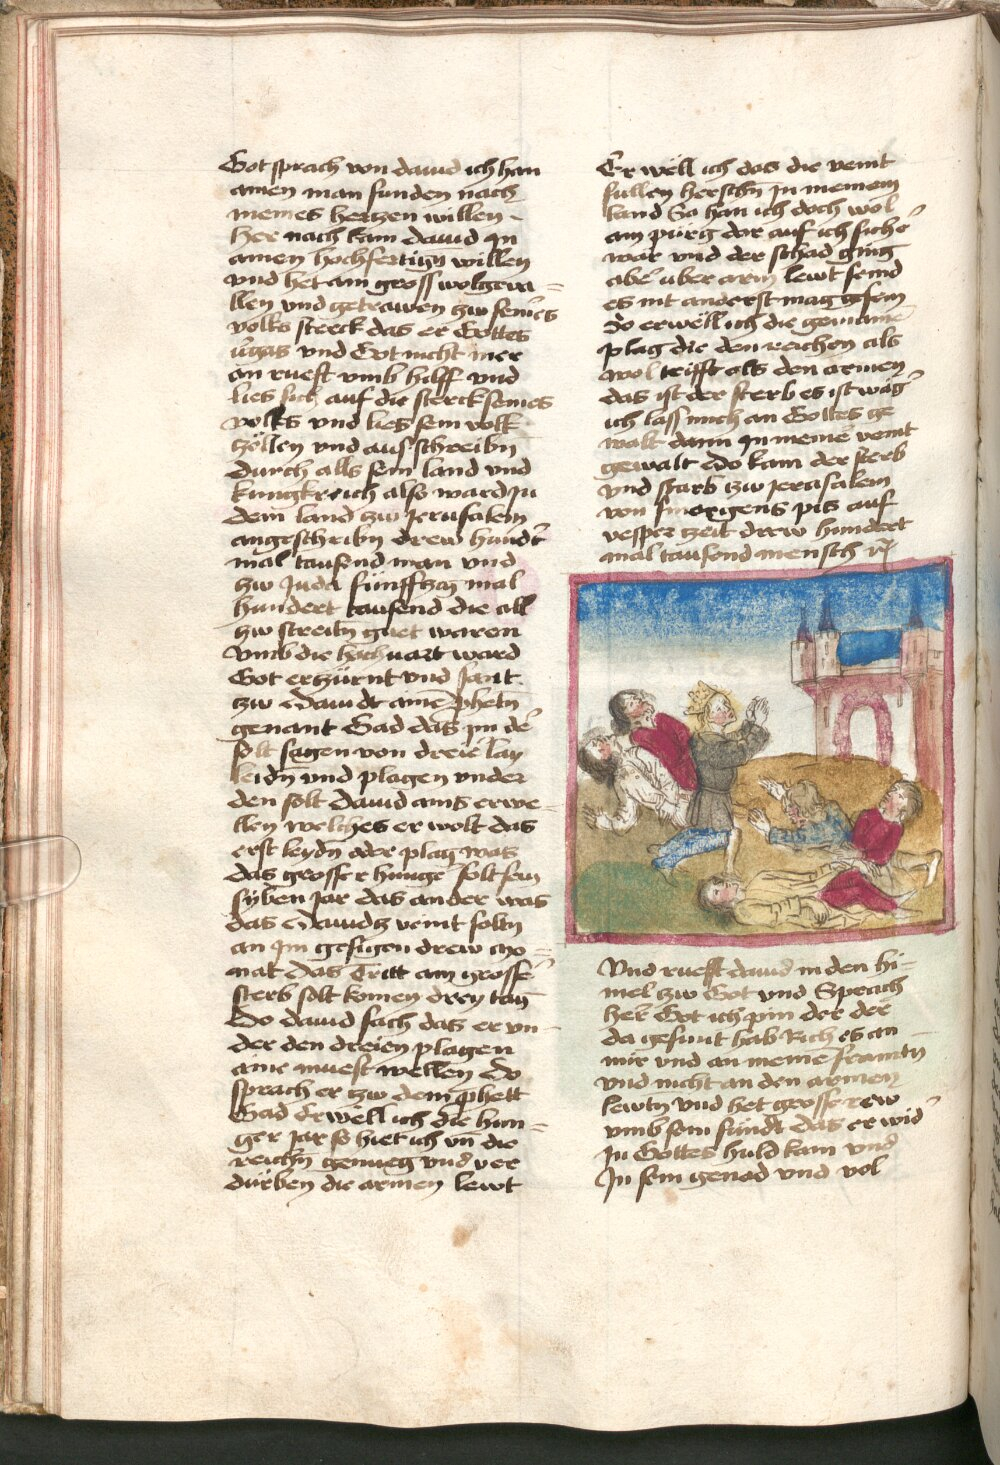 Got sprach von dauid ich han
ainen man funden nach
meines hertzen willen
her nach kam dauid in
ainen hochfertign willen
vnd het ain gross wolgeua=
llen vnd getrawen zw seines
volks sterck das er Gottes
vᷓgas vnd Got nicht mer
an rueft vmb hilff vnd
lies sich auf die sterck seines
volks vnd lies sein volk
zöllen vnd aus schreibn
durch alls sein land vnd
kungkreich also ward in
dem land zw Jerusalem
angeschribn drew hundᷓt
mal tausend man vnd
zw Juda fünffzig mal
hundert tausend die all
zw streitn guet waren
Vmb die hochuart ward
Got erzürnt vnd sant
zw dauidt aine phetn
genant Gad das im dᷓ
solt sagen von dreier lay
leidn vnd plagen vnder
den solt dauid ains erwe=
llen welches er wolt das
erst leydn oder plag was
das grosser hunger solt sein
syben Jar das ander was
das dauidz veint soltn
an im gesigen drew mo=
nat das Tritt ain grosser
sterb solt komen drey tag
Do dauid sach das er vn=
der den dreien plagen
aine muest wellen do
sprach er zw dem phett
Gad Erwell ich die hun=
ger Jar so hiet ich vn die
reichn genueg vnd ver
dürben die armen lewt
Er well ich das die veint
sullen herschn in meinem
land So han ich doch wol
ain purg dar auf ich sichᷓ
wär vnd der schad ging
abeᷓ uber arm lewt seind
es nit anderst mag gesein
so erwell ich die gemaine
plag die den reichen als
wol trifft als den armen
das ist der sterb es ist wäg
ich lass mich an Gottes ge
walt dann in meineᷓ veint
gewalt Do kam der sterb
vnd starb zw Jerusalem
von smorigens pis auf
vesper zeit drew hundert
mal tausond mensch
Vnd ruefft dauid in den hi=
mel zw Got vnd Sprach
heᷓr Got ich pin der der
da gesunt hab Rich es an
mir vnd an meine frawntn
vnd nicht an den armen
lewtn vnd het grosse rew
vmb sein sündt das er widᷓ
in Gottes huld kam vnd
in sein genad vnd vol